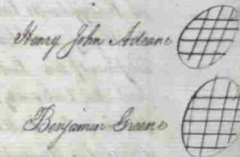 Henry John Adeane
Benjamin Greene